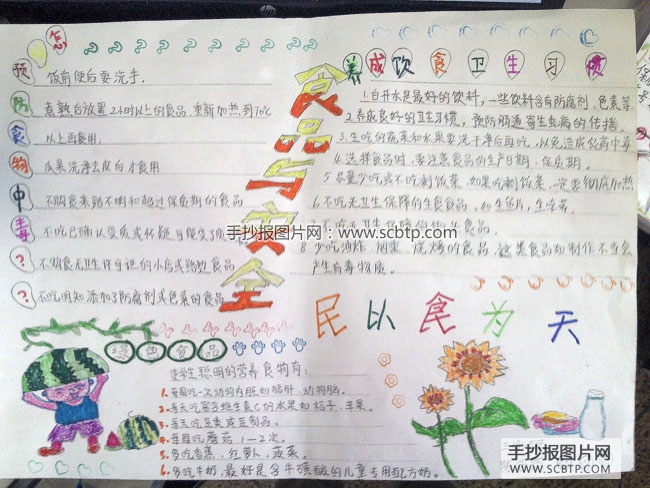 怎
预防食物中毒??
饭前便后要洗手.
煮熟后放置2小时以上的食品,重新加热到70℃
以上再食用.
瓜果洗净去皮后才食用
不购食来路不明和超过保质期的食品
不购食无卫生许可证的小店或路边食品
不吃明知添加了防腐剂或色素的食品
食品与安全
养成饮食卫生习惯
1.白开水是最好的饮料,一些饮料含有防腐剂、色素等.
2.养成良好的卫生习惯,预防肠道寄生虫病的传播.
3.生吃的蔬菜和水果要洗干净后再吃,以免造成农药中毒
4.选择食品时,要注意食品的生产日期、保质期。
5.尽量少吃或不吃剩饭菜,如果吃剩饭菜,一定要彻底加热
6.不吃无卫生保障的生食食品,如生鱼片,生字荠。
手抄报图片网 www.scbtp.com
8.少吃油炸、烟熏、烧烤的食品,这类食品如制作不当会
产生有毒物质。
民以食为天
绿色食品
使学生聪明的营养食物有:
1.每周吃一次动物内脏如猪肝,动物脑。
2.每天吃富含维生素C的水果如桔子,苹果。
3.每天吃豆类或豆制品。
4.每周吃蘑菇1-2次。
5.多吃香蕉,红萝卜,菠菜。
6.多吃牛奶,最好是含牛磺酸的儿童专用配方奶。
手抄报图片网
WWW.SCBTP.COM